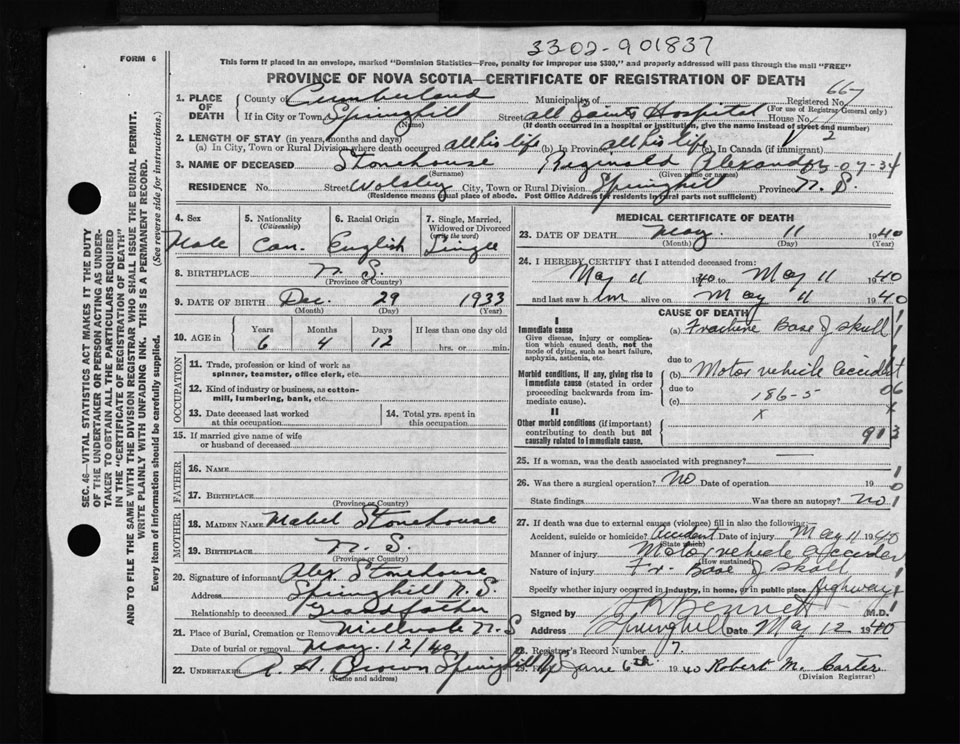 33-02-901837
FORM 6
This form if placed in an envelope, marked "Dominion Statistics—Free, penalty for improper use $300," and properly addressed will pass through the mail "FREE"
PROVINCE OF NOVA SCOTIA—CERTIFICATE OF REGISTRATION OF DEATH
667
1. PLACE OF DEATH County of Cumberland Municipality of Registered No.
(For use of Registrar General only)
If in City or Town Springhill Street All Saints Hospital House No.
(Name) (If death occurred in a hospital or institution, give the name instead of street and number)
2. LENGTH OF STAY (in years, months and days)
(a) In City, Town or Rural Division where death occurred all his life (b) In Province all his life (c) In Canada (if immigrant)
3. NAME OF DECEASED Stonehouse Reginald Alexander 05-07-34
(Surname) (Given name or names)
RESIDENCE No. Street Wolsley City, Town or Rural Division Springhill Province N. S.
(Residence means usual place of abode. Post Office Address for residents in rural parts not sufficient)
4. Sex 5. Nationality (Citizenship) 6. Racial Origin 7. Single, Married, Widowed or Divorced (write the word)
Male Can. English Single
8. BIRTHPLACE N. S.
(Province or Country)
9. DATE OF BIRTH Dec. 29 1933
(Month) (Day) (Year)
10. AGE in Years Months Days If less than one day old
6 4 12 hrs. or min.
OCCUPATION
11. Trade, profession or kind of work as spinner, teamster, office clerk, etc.
12. Kind of industry or business, as cotton-mill, lumbering, bank, etc.
13. Date deceased last worked at this occupation
14. Total yrs. spent in this occupation
15. If married give name of wife or husband of deceased
FATHER
16. NAME
17. BIRTHPLACE
(Province or Country)
MOTHER
18. MAIDEN NAME Mabel Stonehouse
19. BIRTHPLACE N. S.
(Province or Country)
20. Signature of informant Alex Stonehouse
Address Springhill N. S.
Relationship to deceased Grandfather
21. Place of Burial, Cremation or Removal Millvale N. S
Date of burial or removal May 12/40
22. UNDERTAKER A. A. Brown Springhill
(Name and address)
MEDICAL CERTIFICATE OF DEATH
23. DATE OF DEATH May 11 1940
(Month) (Day) (Year)
24. I HEREBY CERTIFY that I attended deceased from:
May 11 1940 to May 11 1940
and last saw him alive on May 11 1940
CAUSE OF DEATH
I
Immediate cause (a) Fracture Base of Skull
Give disease, injury or complication which caused death, not the mode of dying, such as heart failure, asphyxia, asthenia, etc.
due to
Morbid conditions, if any, giving rise to immediate cause (stated in order proceeding backwards from immediate cause). (b) Motor vehicle accident
due to
(c) 186-5
x
II
Other morbid conditions (if important) contributing to death but not causally related to immediate cause.
913
25. If a woman, was the death associated with pregnancy?
26. Was there a surgical operation? No Date of operation 19
State findings Was there an autopsy? no
27. If death was due to external causes (violence) fill in also the following:
Accident, suicide or homicide? Accident Date of injury May 11 1940
(State which)
Manner of injury Motor vehicle accident
(How sustained)
Nature of injury Fr. Base of skull
Specify whether injury occurred in industry, in home, or in public place highway
Signed by Bennett M.D.
Address Springhill Date May 12 1940
28. Registrar's Record Number 7.
29. June 6th 1940 Robert M. Carter
(Division Registrar)
SEC. 46—VITAL STATISTICS ACT MAKES IT THE DUTY
OF THE UNDERTAKER OR PERSON ACTING AS UNDER-
TAKER TO OBTAIN ALL THE PARTICULARS REQUIRED
IN THE "CERTIFICATE OF REGISTRATION OF DEATH"
AND TO FILE THE SAME WITH THE DIVISION REGISTRAR WHO SHALL ISSUE THE BURIAL PERMIT.
WRITE PLAINLY WITH UNFADING INK. THIS IS A PERMANENT RECORD.
Every item of Information should be carefully supplied. (See reverse side for instructions.)